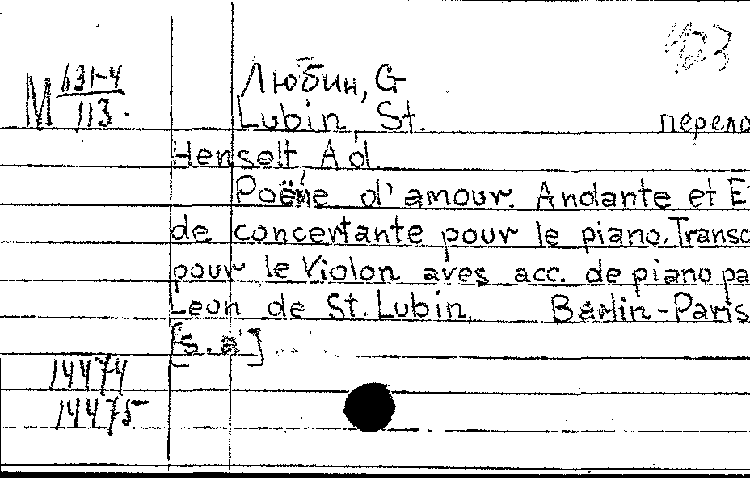 M 631-4
113.
Любин, G
Lubin, St.
перело
Henselt, Ad.
Poème d'amour. Andante et E
de concertante pour le piano. Transc
pour le Violon aves acc. de piano pa
Leon de St. Lubin. Berlin-Paris
[s.a]
14474
14475